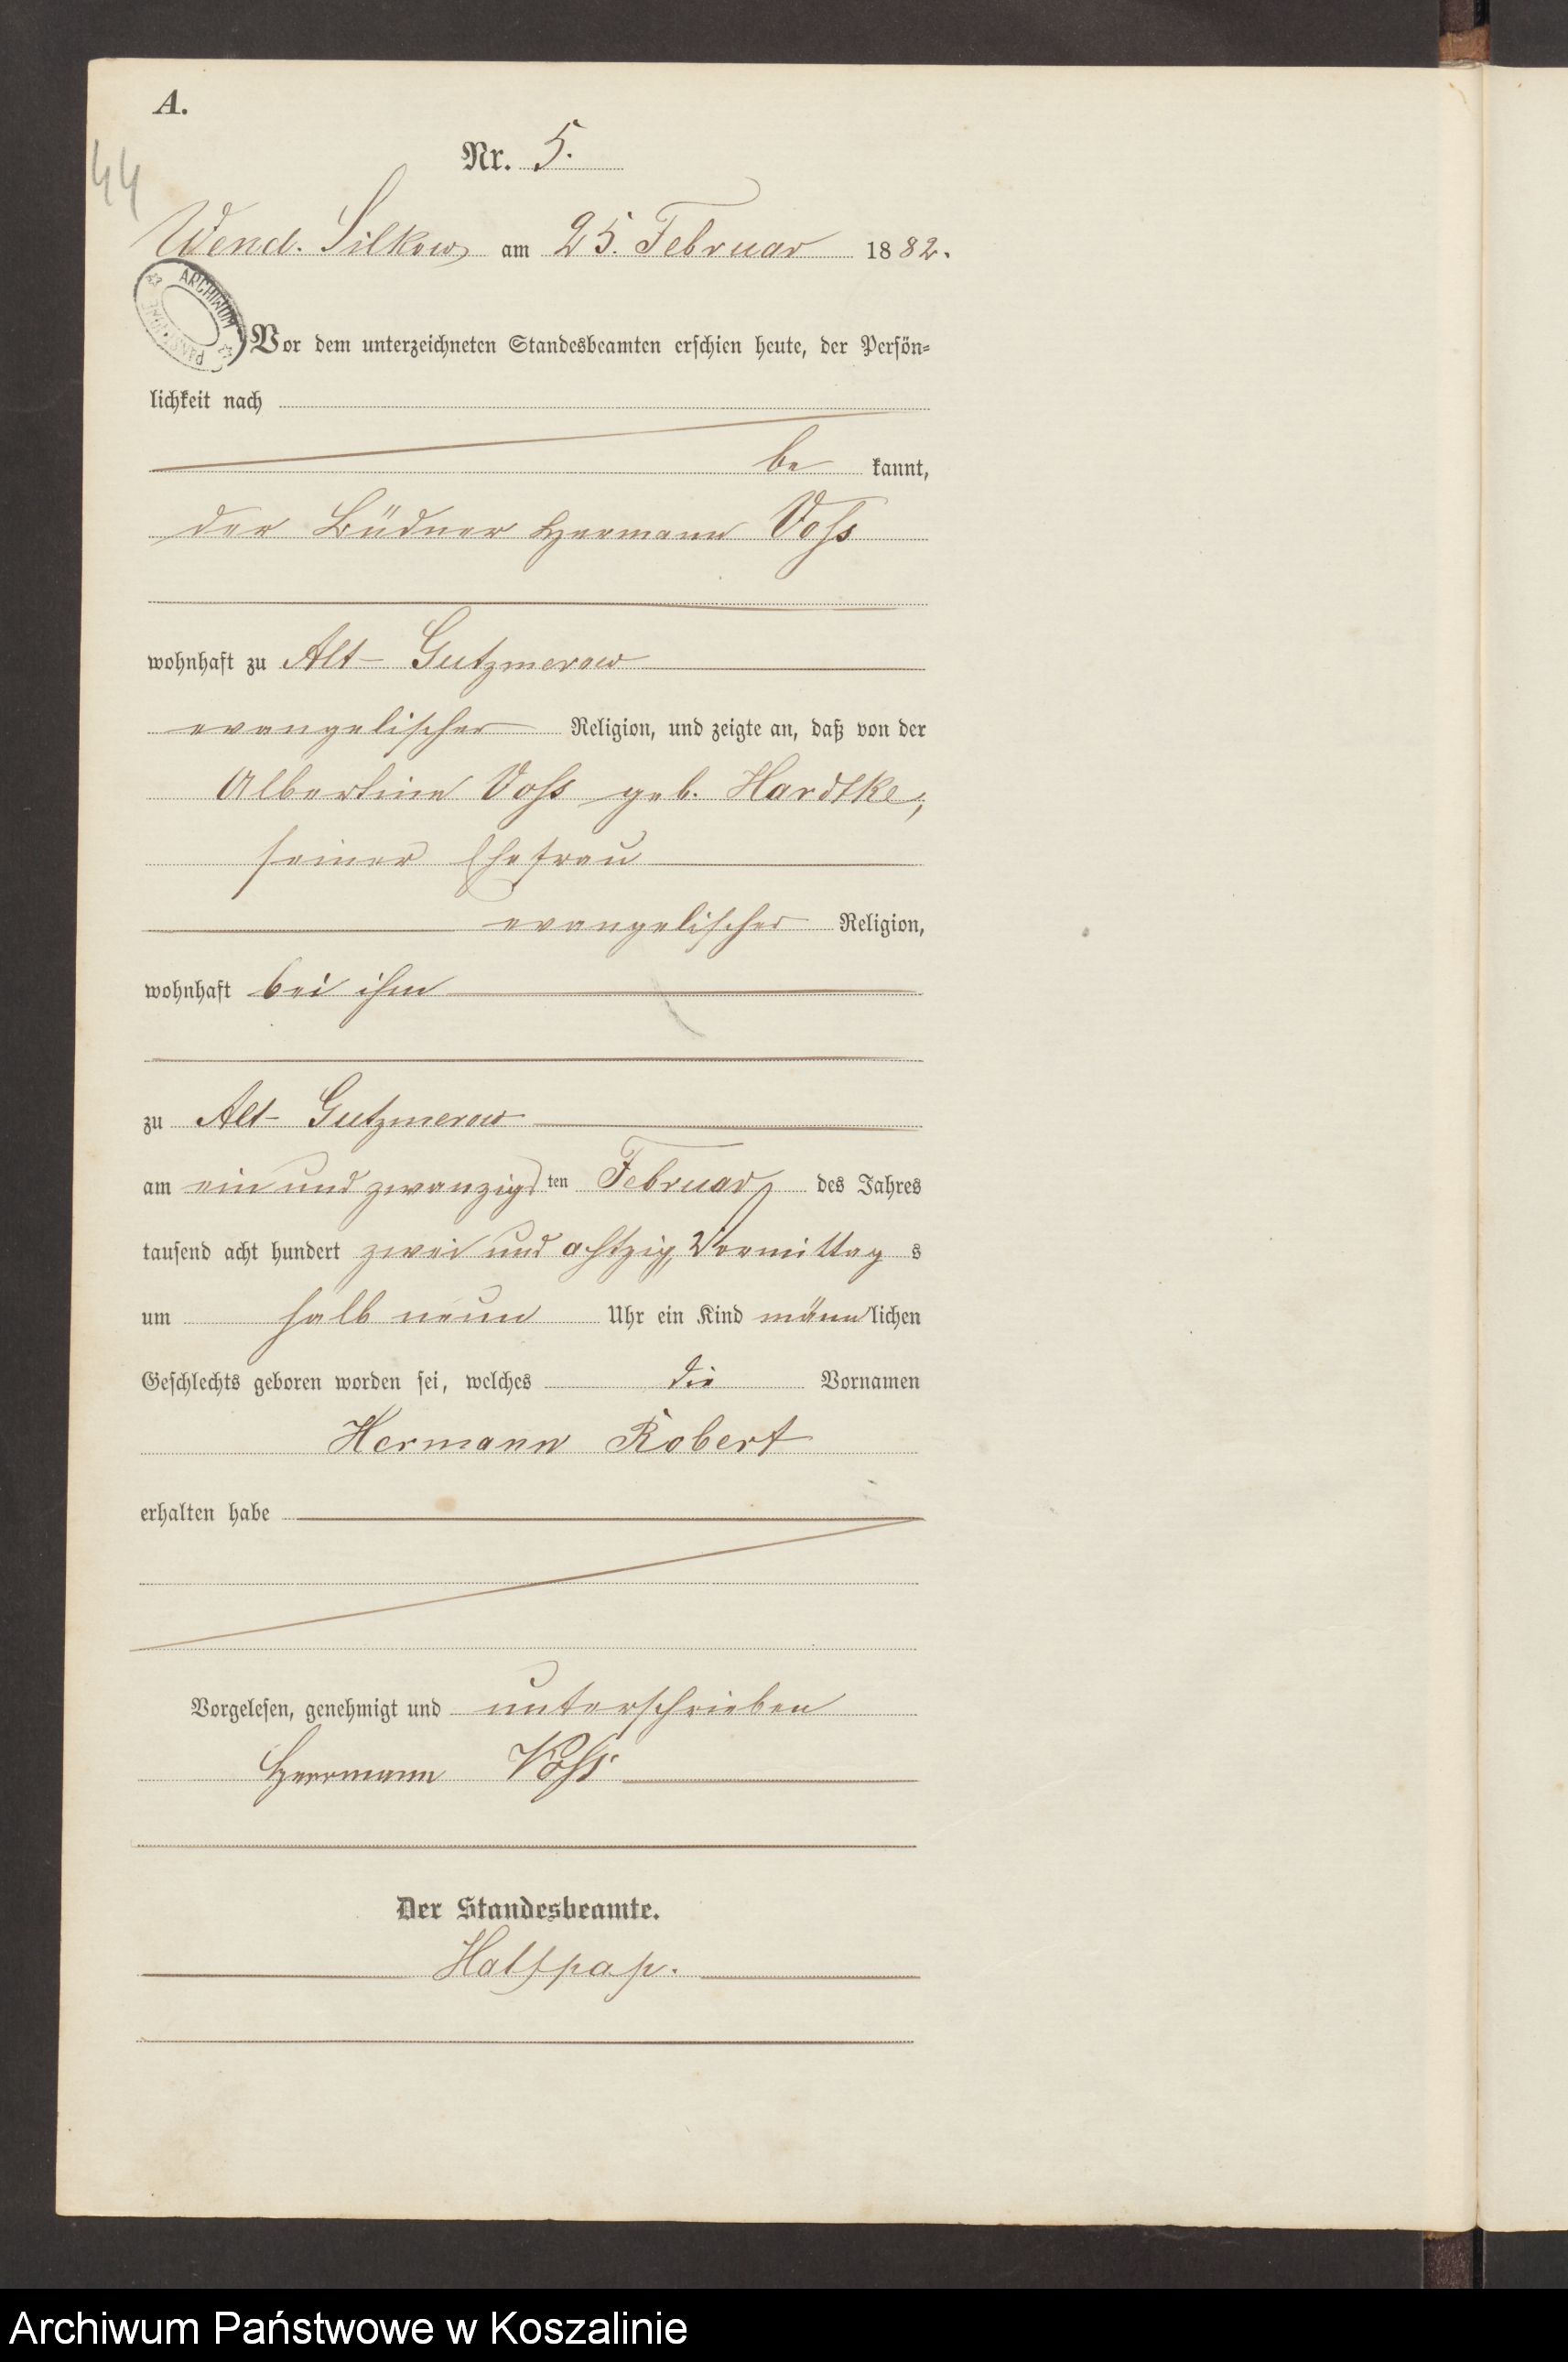 A.
44
Nr. 5.
Wend. Silkow am 25. Februar 1882.
ARCHIWUM PAŃSTWOWE
Vor dem unterzeichneten Standesbeamten erschien heute, der Persön=
lichkeit nach
be kannt,
der Büdner Hermann Voß
wohnhaft zu Alt-Gutzmerow
evangelischer Religion, und zeigte an, daß von der
Albertine Voß geb. Hardtke,
seiner Ehefrau
evangelischer Religion,
wohnhaft bei ihm
zu Alt-Gutzmerow
am ein und zwanzigsten Februar des Jahres
tausend acht hundert zwei und achtzig, Vormittags
um halb neun Uhr ein Kind männlichen
Geschlechts geboren worden sei, welches die Vornamen
Hermann Robert
erhalten habe
Vorgelesen, genehmigt und unterschrieben
Herrmann Voß
Der Standesbeamte.
Halfpap.
Archiwum Państwowe w Koszalinie